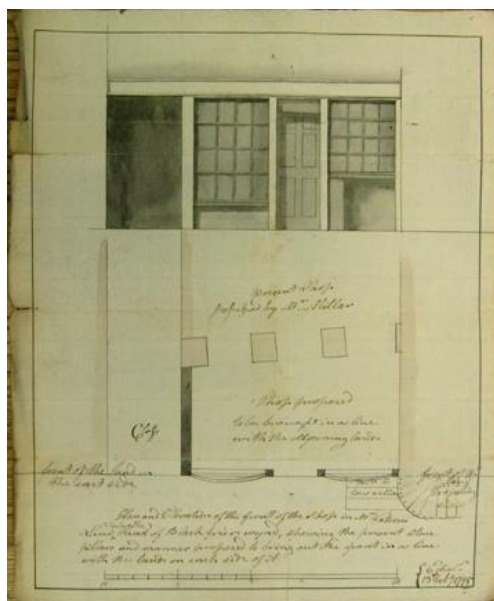 present Shop
possessed by Mr Millar
Shop proposed
to be brought in a line
with the adjoining lands
Close
front of the land on
the east side
front of the
Plan and Elevation of the front of the Shop in
Land, head of Black friers wynd, shewing the present stone
pillars and manner proposed to bring out the front in a line
with the lands on each side of it
Edinr
13 Octr 1795